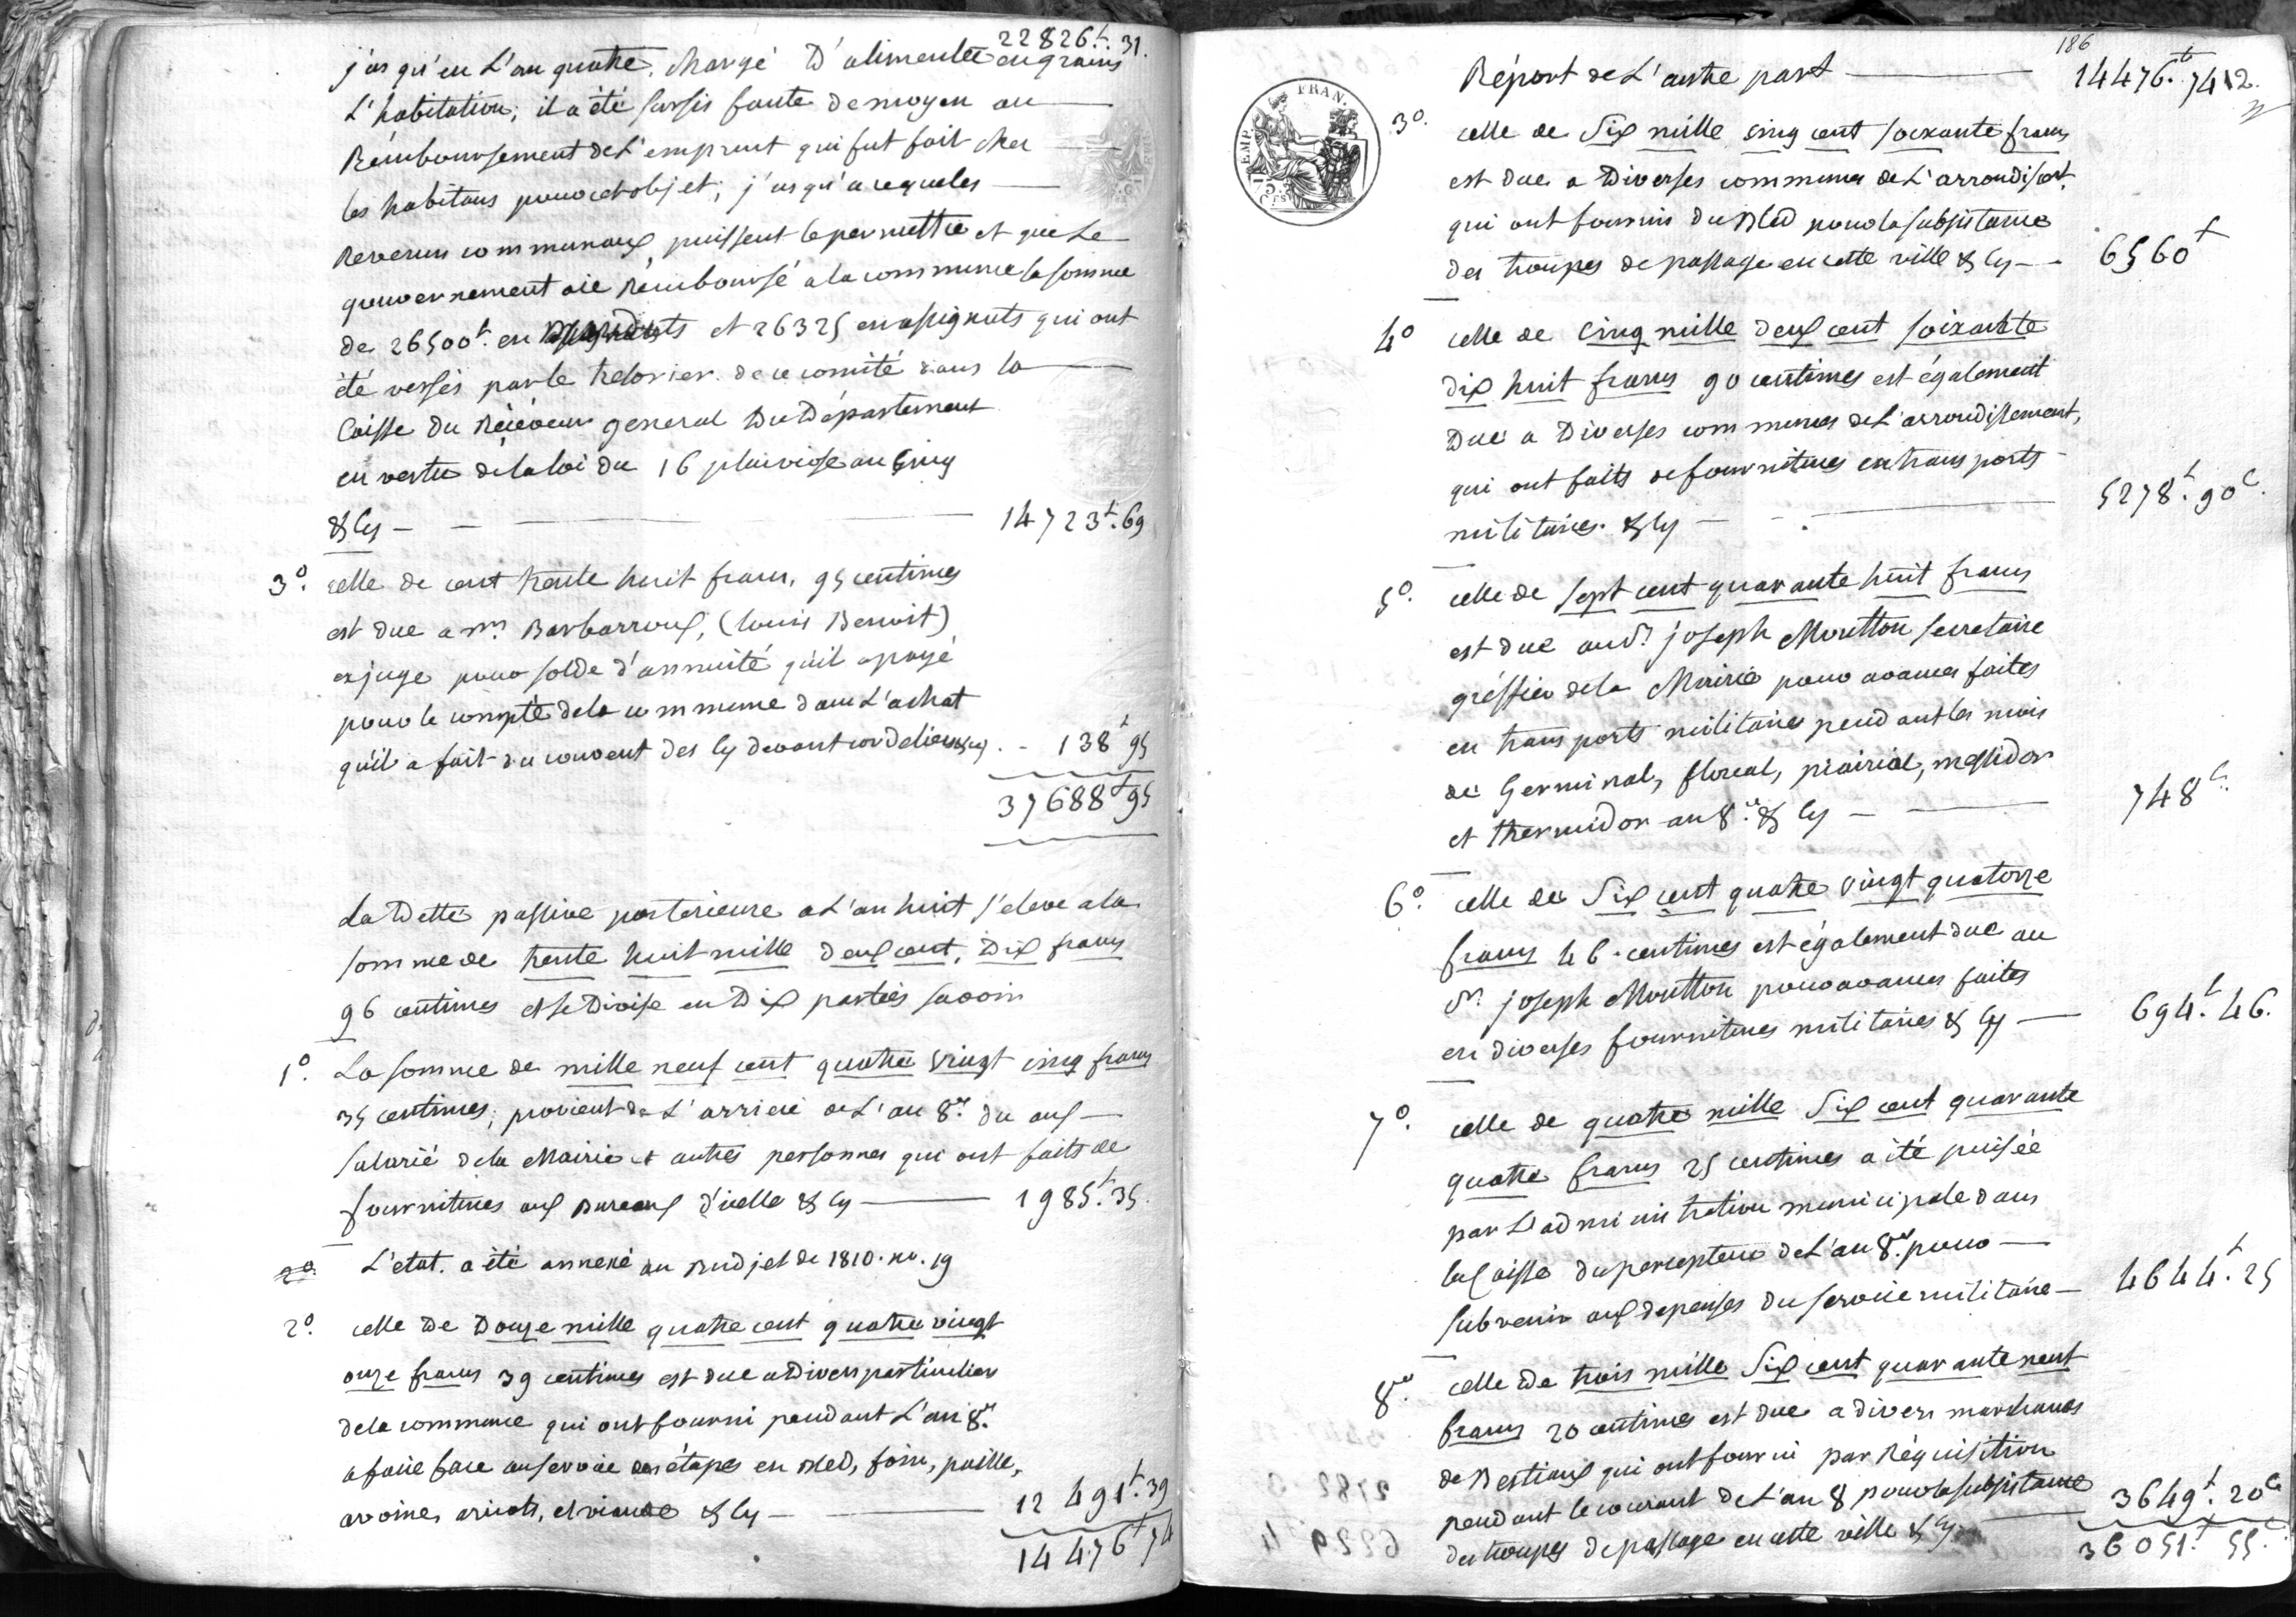 22826.₶ 31.
jus qu'en L'an quatre, chargé D'alimenter en grains
L'habitation; il a été sursis faute de moyen au
Rémboursement de L'emprunt qui fut fait chez
les habitans pour cet objet; jusqu'a ceque les
Revenus communaux puissent le permettre et que Le
gouvernement aie Rémboursé a la commune la somme
de 26500₶ en et 26325 en assignats qui ont
été versés par le tresorier de ce comité dans la
Caisse du Réceveur general Du Département
en vertu de la loi du 16 pluviose an Cinq
& Cy — 14723₶.69
3°. celle de cent trente huit francs, 95 centimes
est due a Mr. Barbarroux, (louis Benoit)
ex juge pour solde d'annuité qu'il a payé
pour le compte de la commune dans L'achat
qu'il a fait du couvent des Cy devant cordeliers & cy . - 138₶ 95
37688₶ 95
La Dette passive posterieure a L'an huit s'eleve a la
somme de trente huit mille deux cent, Dix francs
96 centimes et se Divise en Dix parties savoir
1°. La somme de mille neuf cent quatre vingt cinq francs
35 centimes; provient de L'arrieré de L'an 8e. du aux
salarié de la Mairie et autres personnes qui ont faits de
fournitures aux Bureaux d'icelle & cy — 1985₶.35.
2°. L'etat. a été annexé au Budjet de 1810. no. 19
2°. celle De Douze mille quatre cent quatre vingt
onze francs 39 centimes est due a Divers particuliers
de la commune qui ont fourni pendant L'an 8e.
a faire face au service des étapes en Bled, foin, paille,
avoine, aricots, et viande & Cy — 12 491₶.39
14 476₶ 74
186
Réport de L'autre part — 14476.₶ 74 12.
3°. celle de Six mille cinq cent soixante francs
est due a Diverses communes de L'arrondisst.
qui ont fournis du Bled pour la subsistance
des troupes de passage en cette ville & Cy — 6560₶
4° celle de Cinq mille deux cent soixante
dix huit francs 90 centimes est également
Due a Diverses communes de L'arrondissement,
qui ont faits de fournitures en transports
militaires. & Cy — 5278₶.90c.
5°. celle de sept cent quarante huit francs
est due au Sr. joseph Moutton secretaire
gréffier de la Mairie pour avances faites
en transports militaires pendant les mois
de Germinal, floreal, prairial, messidor
et thermidor an 8e. & Cy — 748₶.
6°. celle de Six cent quatre vingt quatorze
francs 46. centimes est également due au
Sr. joseph Moutton pour avances faites
en diverses fournitures militaires & Cy — 694₶.46.
7°. celle de quatre mille Six cent quarante
quatre francs 25 centimes a été puisée
par L'administration municipale dans
la Caisse du percepteur de L'an 8e. pour
subvenir aux depenses du service militaire — 4644₶.25
8e. celle de trois mille Six cent quarante neuf
francs 20 centimes est due a divers marchands
de Bestiaux qui ont fourni par Réquisition
pendant le courant de L'an 8 pour la subsistance
des troupes de passage en cette ville & Cy. — 3649₶.20c
36051₶.55c.